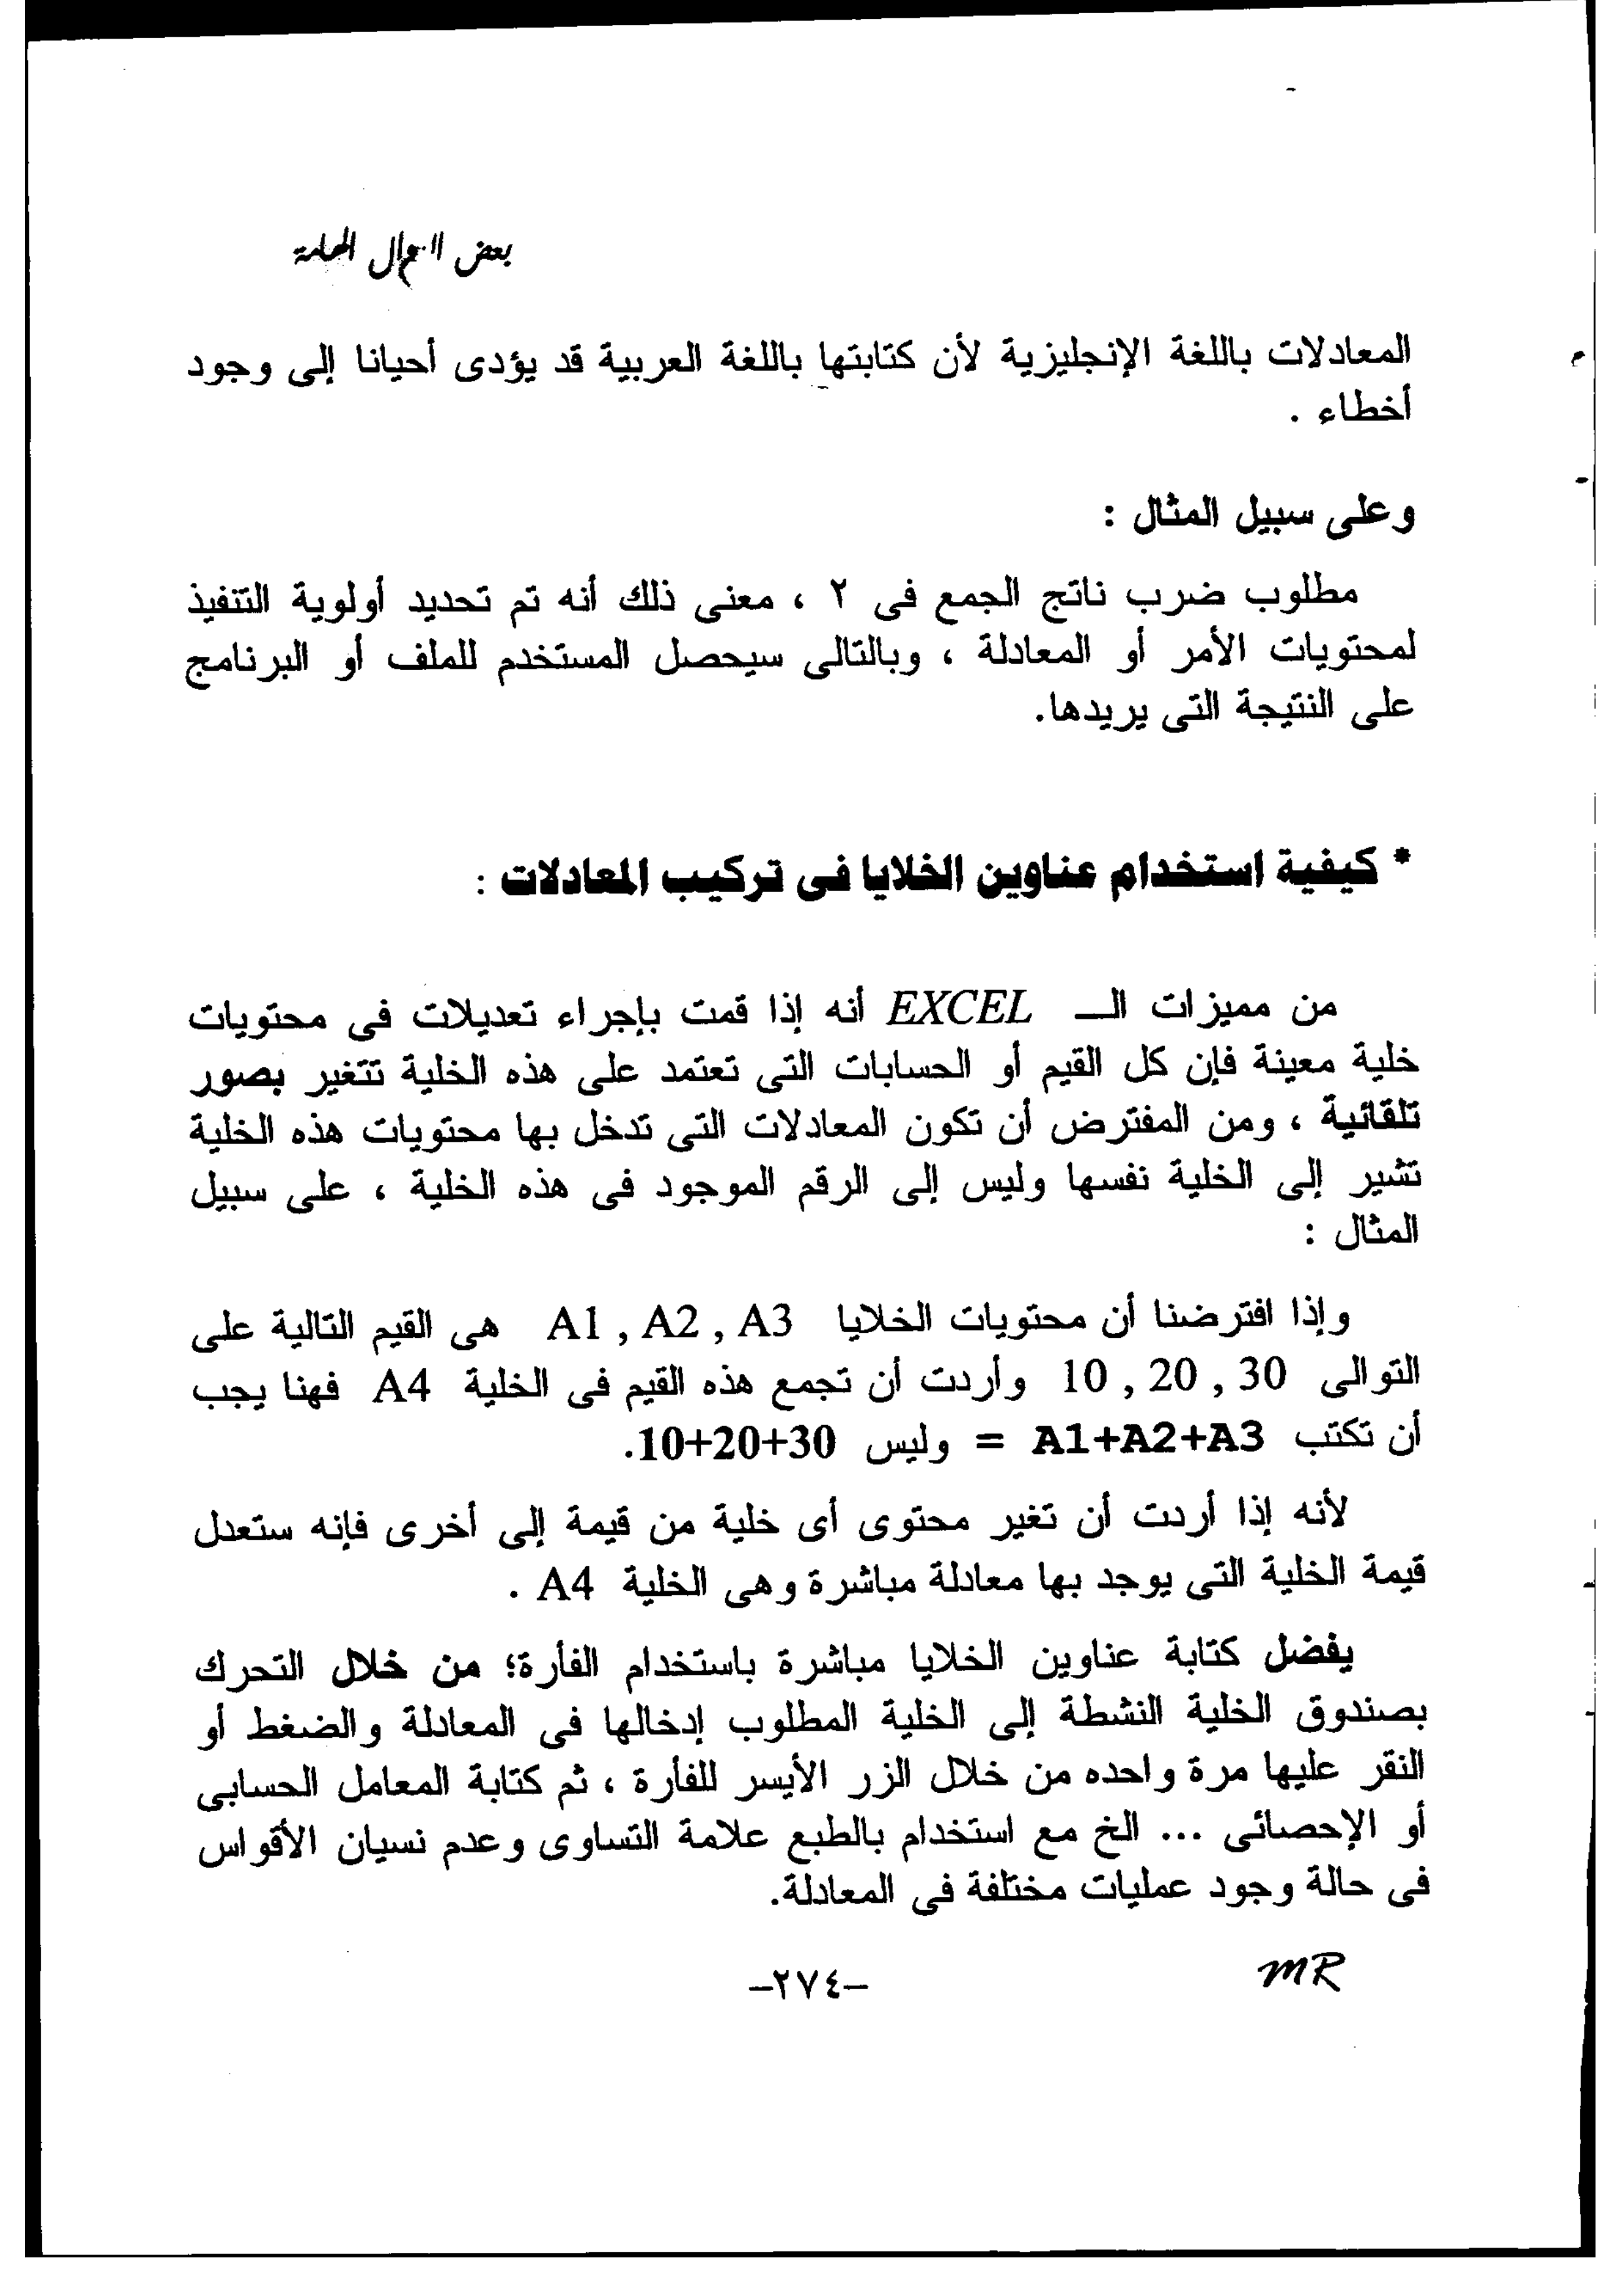 بعض الهامة
المعادلات باللغة الإنجليزية لأن كتابتها باللغة العربية قد يؤدى أحيانا إلى وجود
أخطاء .
وعلى سبيل المثال :
مطلوب ضرب ناتج الجمع فى ٢ ، معنى ذلك أنه تم تحديد أولوية التنفيذ
لمحتويات الأمر أو المعادلة ، وبالتالى سيحصل المستخدم للملف أو البرنامج
على النتيجة التى يريدها.
* كيفية استخدام عناوين الخلايا فى تركيب المعادلات :
من مميزات الـــ EXCEL أنه إذا قمت بإجراء تعديلات فى محتويات
خلية معينة فإن كل القيم أو الحسابات التى تعتمد على هذه الخلية تتغير بصور
تلقائية ، ومن المفترض أن تكون المعادلات التى تدخل بها محتويات هذه الخلية
تشير إلى الخلية نفسها وليس إلى الرقم الموجود فى هذه الخلية ، على سبيل
المثال :
وإذا افترضنا أن محتويات الخلايا A1 , A2 , A3 هى القيم التالية على
التوالى 10 , 20 , 30 وأردت أن تجمع هذه القيم فى الخلية A4 فهنا يجب
أن تكتب A1+A2+A3 = وليس 10+20+30.
لأنه إذا أردت أن تغير محتوى أى خلية من قيمة إلى أخرى فإنه ستعدل
قيمة الخلية التى يوجد بها معادلة مباشرة وهى الخلية A4 .
يفضل كتابة عناوين الخلايا مباشرة باستخدام الفأرة؛ من خلال التحرك
بصندوق الخلية النشطة إلى الخلية المطلوب إدخالها فى المعادلة والضغط أو
النقر عليها مرة واحده من خلال الزر الأيسر للفأرة ، ثم كتابة المعامل الحسابى
أو الإحصائى ... الخ مع استخدام بالطبع علامة التساوى وعدم نسيان الأقواس
فى حالة وجود عمليات مختلفة فى المعادلة.
MR
–٢٧٤–